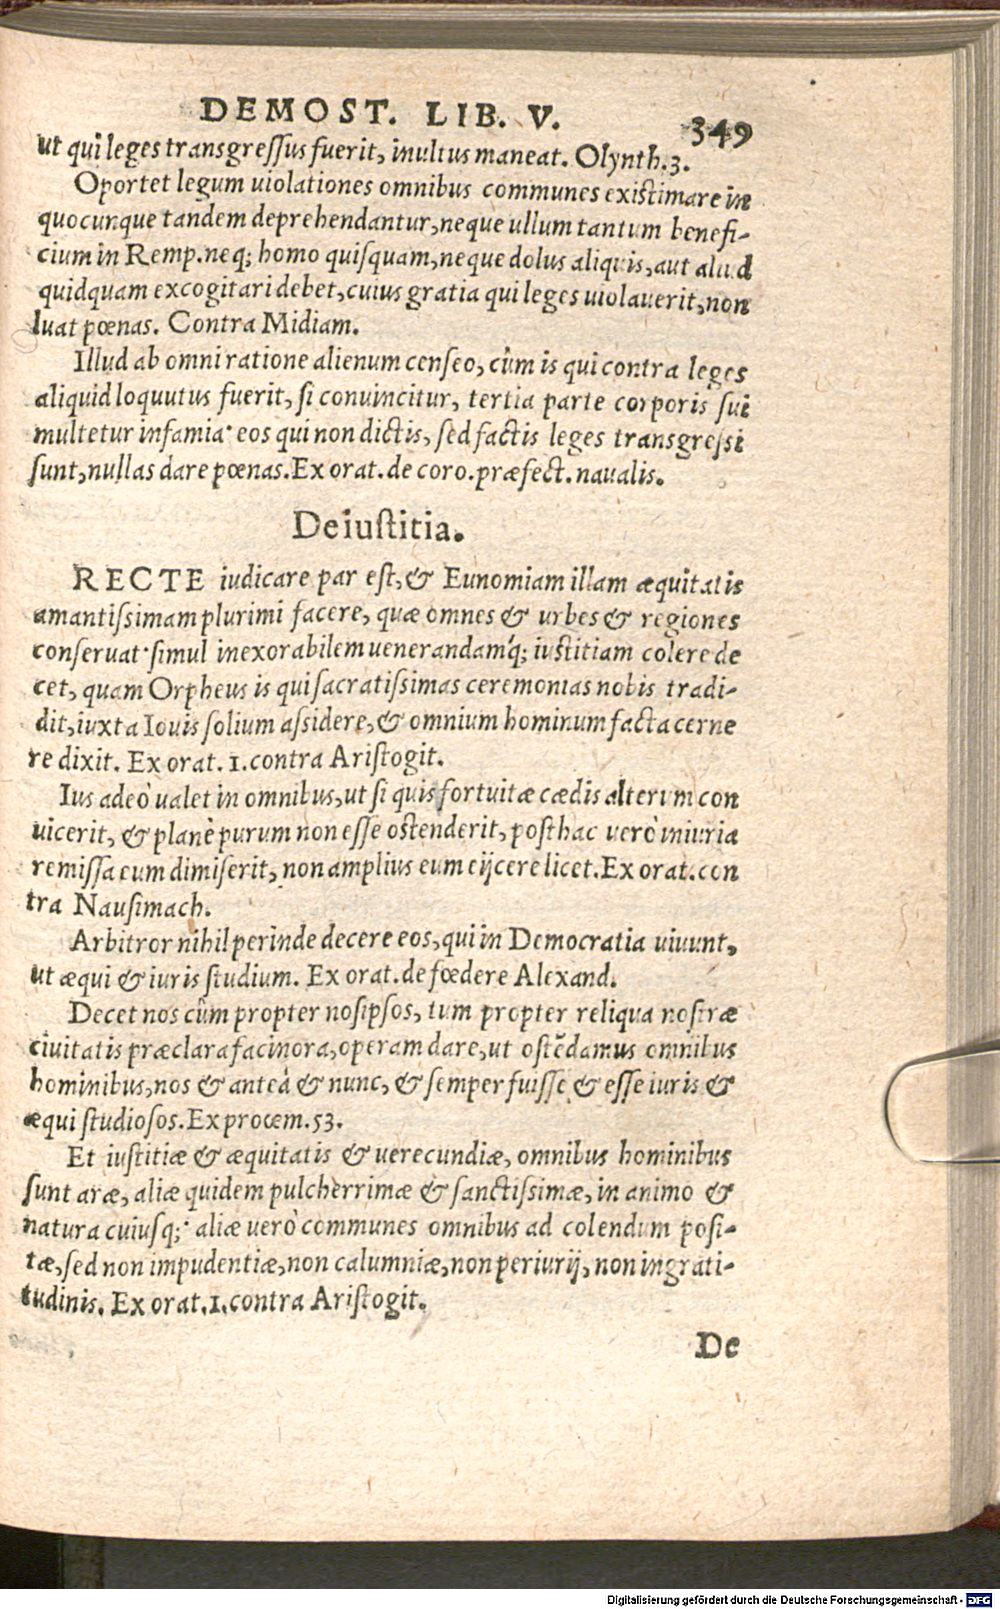 DEMOST. LIB. V. 349
ut qui leges transgreſſus fuerit, inultus maneat. Olynth.3.
Oportet legum uiolationes omnibus communes existimare in
quocunque tandem deprehendantur, neque ullum tantum benefi-
cium in Remp. neq; homo quiſquam, neque dolus aliquis, aut aliud
quidquam excogitari debet, cuius gratia qui leges uiolauerit, non
luat pœnas. Contra Midiam.
Illud ab omni ratione alienum cenſeo, cùm is qui contra leges
aliquid loquutus fuerit, ſi conuincitur, tertia parte corporis ſui
multetur infamia· eos qui non dictis, ſed factis leges transgreſſi
ſunt, nullas dare pœnas. Ex orat. de coro. præfect. naualis.
De iuſtitia.
RECTE iudicare par eſt, & Eunomiam illam æquitatis
amantiſſimam plurimi facere, quæ omnes & urbes & regiones
conſeruat· ſimul inexorabilem uenerandamq́; iuſtitiam colere de
cet, quam Orpheus is qui ſacratiſſimas ceremonias nobis tradi-
dit, iuxta Iouis ſolium aſſidere, & omnium hominum facta cerne
re dixit. Ex orat. 1. contra Ariſtogit.
Ius adeò ualet in omnibus, ut ſi quis fortuitæ cædis alterum con
uicerit, & planè purum non eſſe oſtenderit, poſthac verò iniuria
remiſſa eum dimiſerit, non amplius eum eijcere licet. Ex orat. con
tra Nauſimach.
Arbitror nihil perinde decere eos, qui in Democratia uiuunt,
ut æqui & iuris ſtudium. Ex orat. de fœdere Alexand.
Decet nos cùm propter noſipſos, tum propter reliqua noſtræ
ciuitatis præclara facinora, operam dare, ut oſtēdamus omnibus
hominibus, nos & anteà & nunc, & ſemper fuiſſe & eſſe iuris &
æqui ſtudioſos. Ex procœm. 53.
Et iuſtitiæ & æquitatis & uerecundiæ, omnibus hominibus
ſunt aræ, aliæ quidem pulcherrimæ & ſanctiſſimæ, in animo &
natura cuiuſq;· aliæ verò communes omnibus ad colendum poſi-
tæ, ſed non impudentiæ, non calumniæ, non periurij, non ingrati-
tudinis. Ex orat. 1. contra Ariſtogit.
De
Digitalisierung gefördert durch die Deutsche Forschungsgemeinschaft - DFG